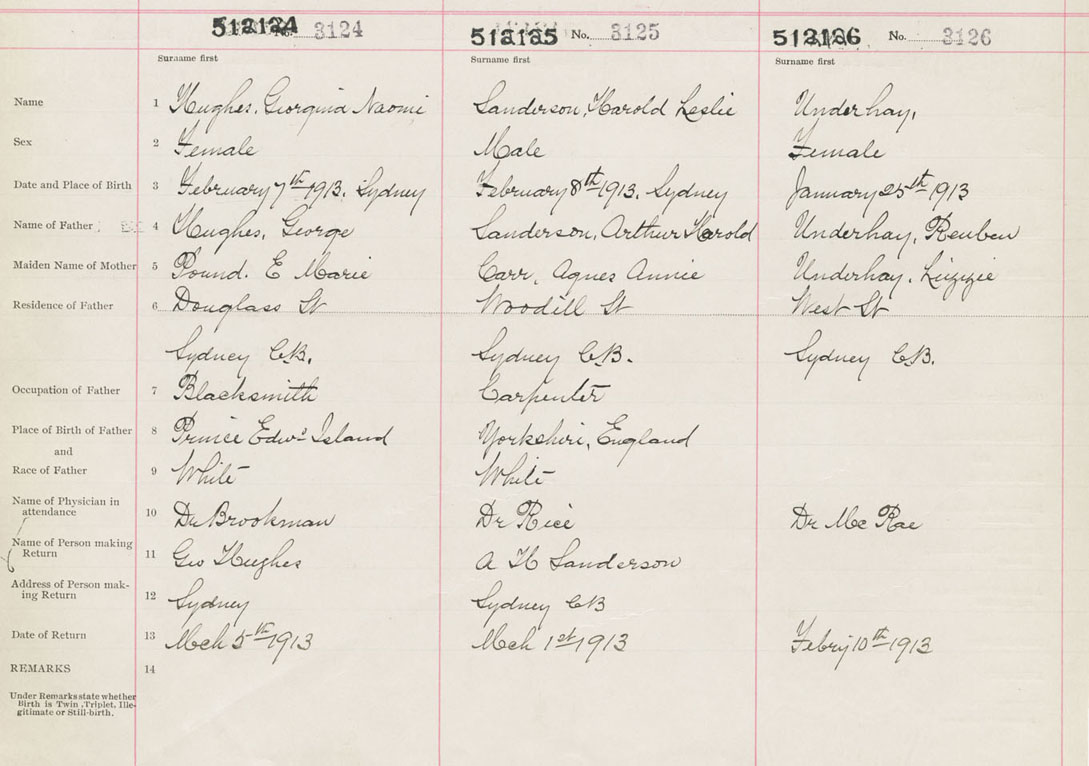 512124 No. 3124 512125 No. 3125 512126 No. 3126
Surname first Surname first Surname first
Name 1 Hughes, Georgina Naomi Sanderson, Harold Leslie Underhay,
Sex 2 Female Male Female
Date and Place of Birth 3 February 7th 1913. Sydney February 8th 1913. Sydney January 25th 1913
Name of Father 4 Hughes, George Sanderson, Arthur Harold Underhay, Reuben
Maiden Name of Mother 5 Pound. E Marie Carr, Agnes Annie Underhay, Lizzie
Residence of Father 6 Douglass St Woodill St West St
Sydney C.B. Sydney C.B. Sydney C.B.
Occupation of Father 7 Blacksmith Carpenter
Place of Birth of Father 8 Prince Edwd Island Yorkshire, England
and
Race of Father 9 White White
Name of Physician in
attendance 10 Dr Brookman Dr Rice Dr Mc Rae
Name of Person making
Return 11 Geo Hughes A H Sanderson
Address of Person mak-
ing Return 12 Sydney Sydney CB
Date of Return 13 Mch 5th 1913 Mch 1st 1913 Febry 10th 1913
REMARKS 14
Under Remarks state whether
Birth is Twin, Triplet, Ille-
gitimate or Still-birth.